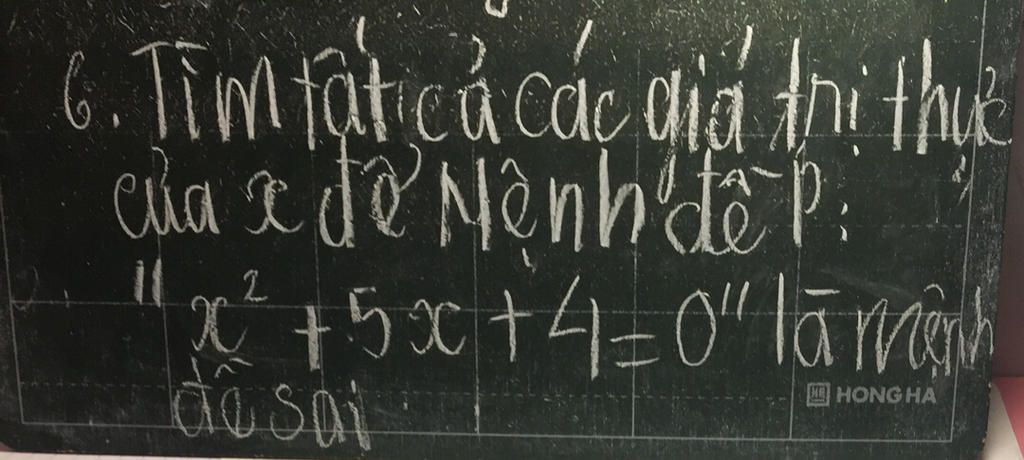 6. Tìm tất cả các giá trị thực
của x để Mệnh đề P:
"x² + 5x + 4 = 0" là mệnh
đề sai
HONG HA